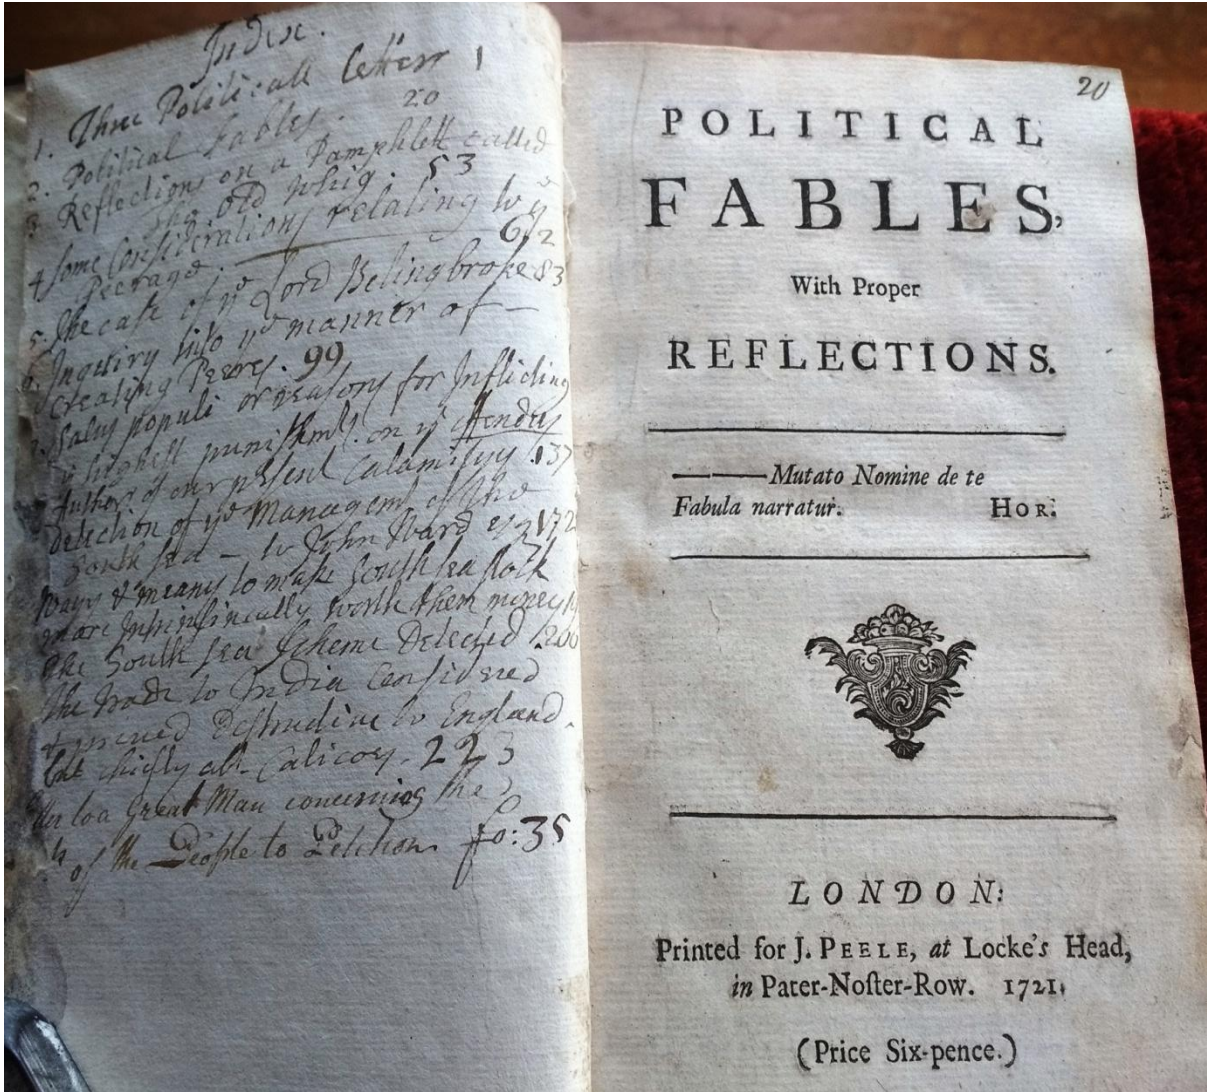 Index.
1. Three Politicall Letters 1
2. Political Fables. 20
3 Reflections on a Pamphlett called
the old Whig. 53
4 Some Considerations relating to yᵉ
Peerage. 62
5. The case of yᵉ Lord Bolingbroke 83
6. Inquiry into yᵉ manner of —
creating Peeres. 99
7. Salus populi or reasons for Inflicting
yᵉ highest punishmᵗ. on yᵉ
Author of our present Calamitys .137
Detection of yᵉ Managemᵗ of the
South sea — to John Ward 172
Ways & means to make South sea stock
more Intrinsically worth then money
The South sea Scheme Detected .200
the trade to India Considered
& proved Destructive to England.
but chiefly all Calicoes. 223
to a Great Man concerning the
of the People to Petition fo: 35
20
POLITICAL
FABLES,
With Proper
REFLECTIONS.
———Mutato Nomine de te
Fabula narratur. HOR.
LONDON:
Printed for J. PEELE, at Locke's Head,
in Pater-Noſter-Row. 1721.
(Price Six-pence.)